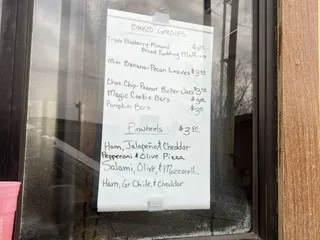 BAKED GOODIES
Fresh Blueberry-Almond
Bread Pudding Muffin
Mini Banana-Pecan Loaves $3
Choc Chip-Peanut Butter Bars $3
Magic Cookie Bars $
Pumpkin Bars $
Pinwheels $3.50
Ham, Jalapeño & Cheddar
Pepperoni & Olive Pizza
Salami, Olive, & Mozzarella
Ham, Gr. Chile, & Cheddar